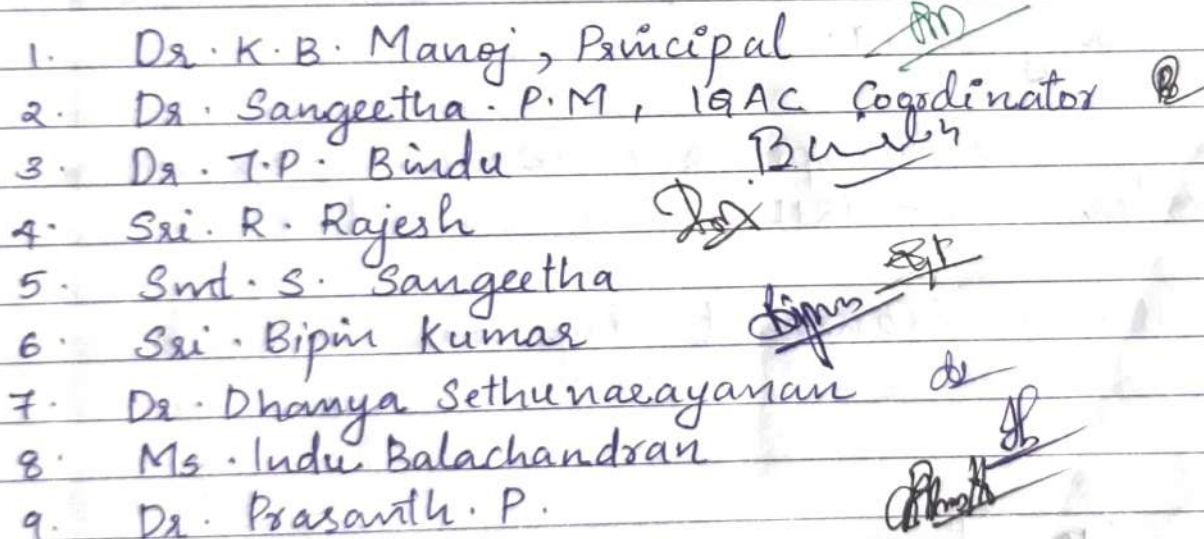 1. Dr. K. B. Manoj, Principal
2. Dr. Sangeetha. P.M, IQAC Coordinator
3. Dr. T.P. Bindu
4. Sri. R. Rajesh
5. Smt. S. Sangeetha
6. Sri. Bipin Kumar
7. Dr. Dhanya Sethunarayanan
8. Ms. Indu Balachandran
9. Dr. Prasanth. P.